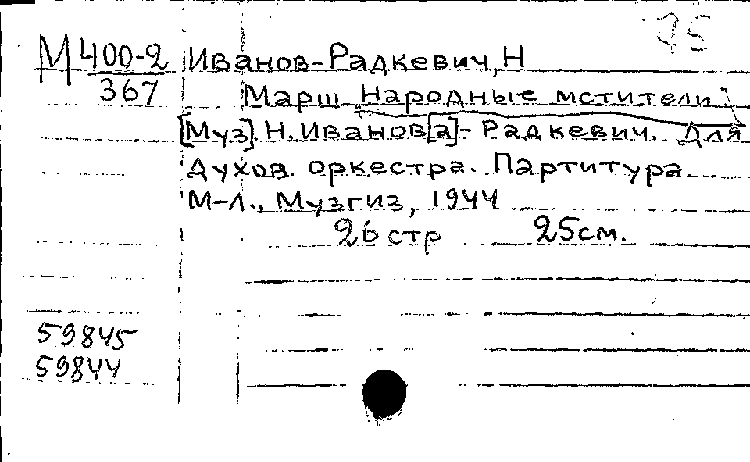 М 400-2
367
Иванов-Радкевич, Н
Марш Народные мстители
[Муз]. Н. Иванов[а]- Радкевич. Для
духов. оркестра. Партитура.
М-Л., Музгиз, 1944
26 стр 25 см.
59845
59844